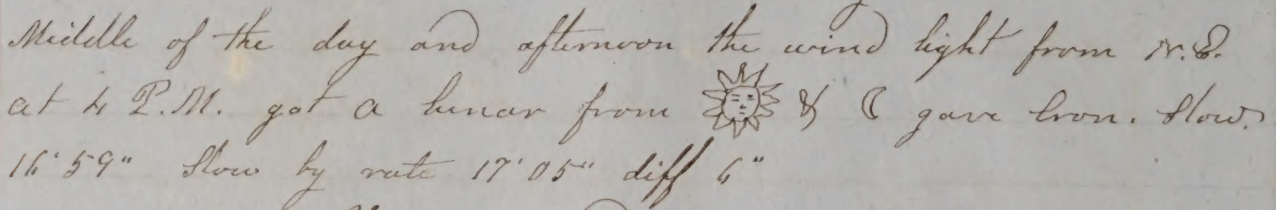 Middle of the day and afternoon the wind light from N.E.
at 4 P.M. got a lunar from ☀ & ☾ gave Cron. Slow.
16' 59" Slow by rate 17' 05" diff 6"